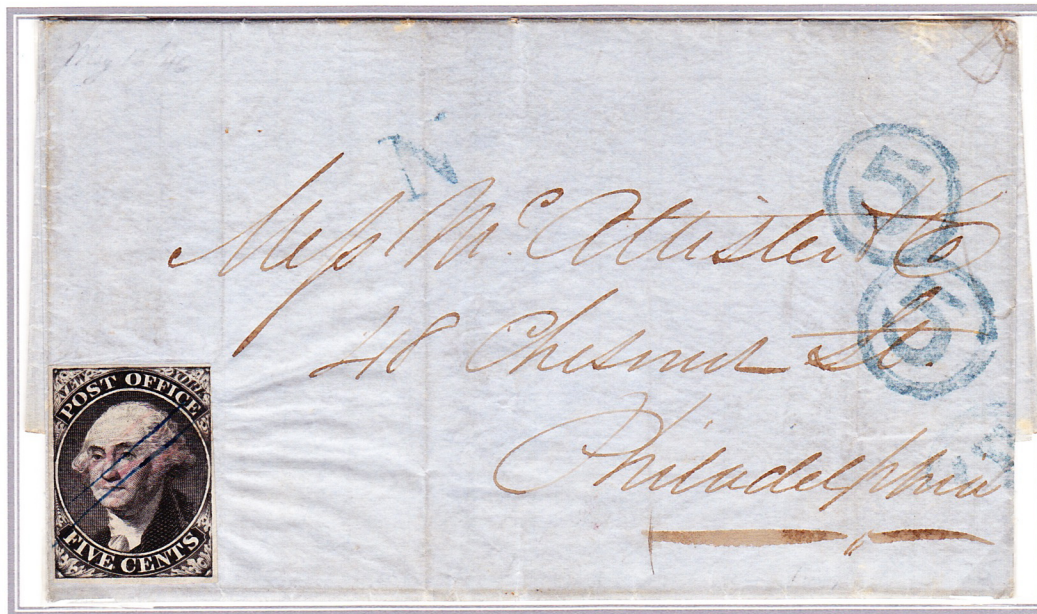 May 13 46
N
5
Mess McAllister & Co
5
48 Chesnut St.
Philadelphia
NEW YORK
POST OFFICE
FIVE CENTS